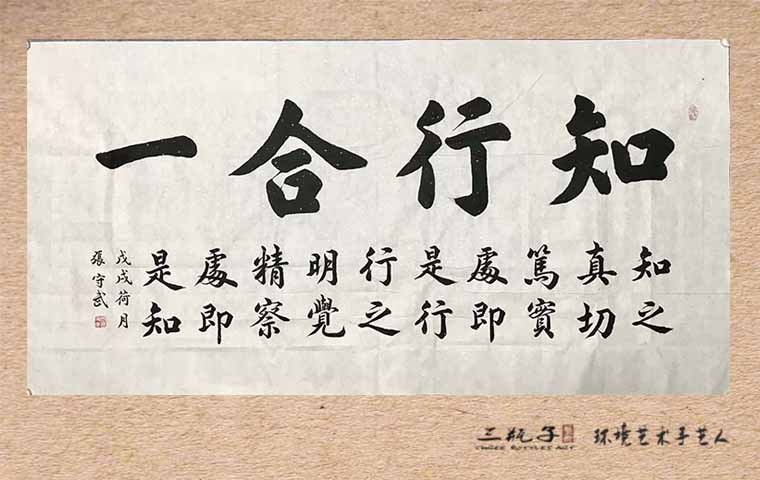 知行合一
知之
真切
篤實
處即
是行
行之
明覺
精察
處即
是知
戊戌荷月
張守武
三瓶子
THREE BOTTLES ART
环境艺术手艺人